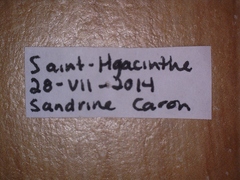 Saint-Hyacinthe
28-VII-2014
Sandrine Caron